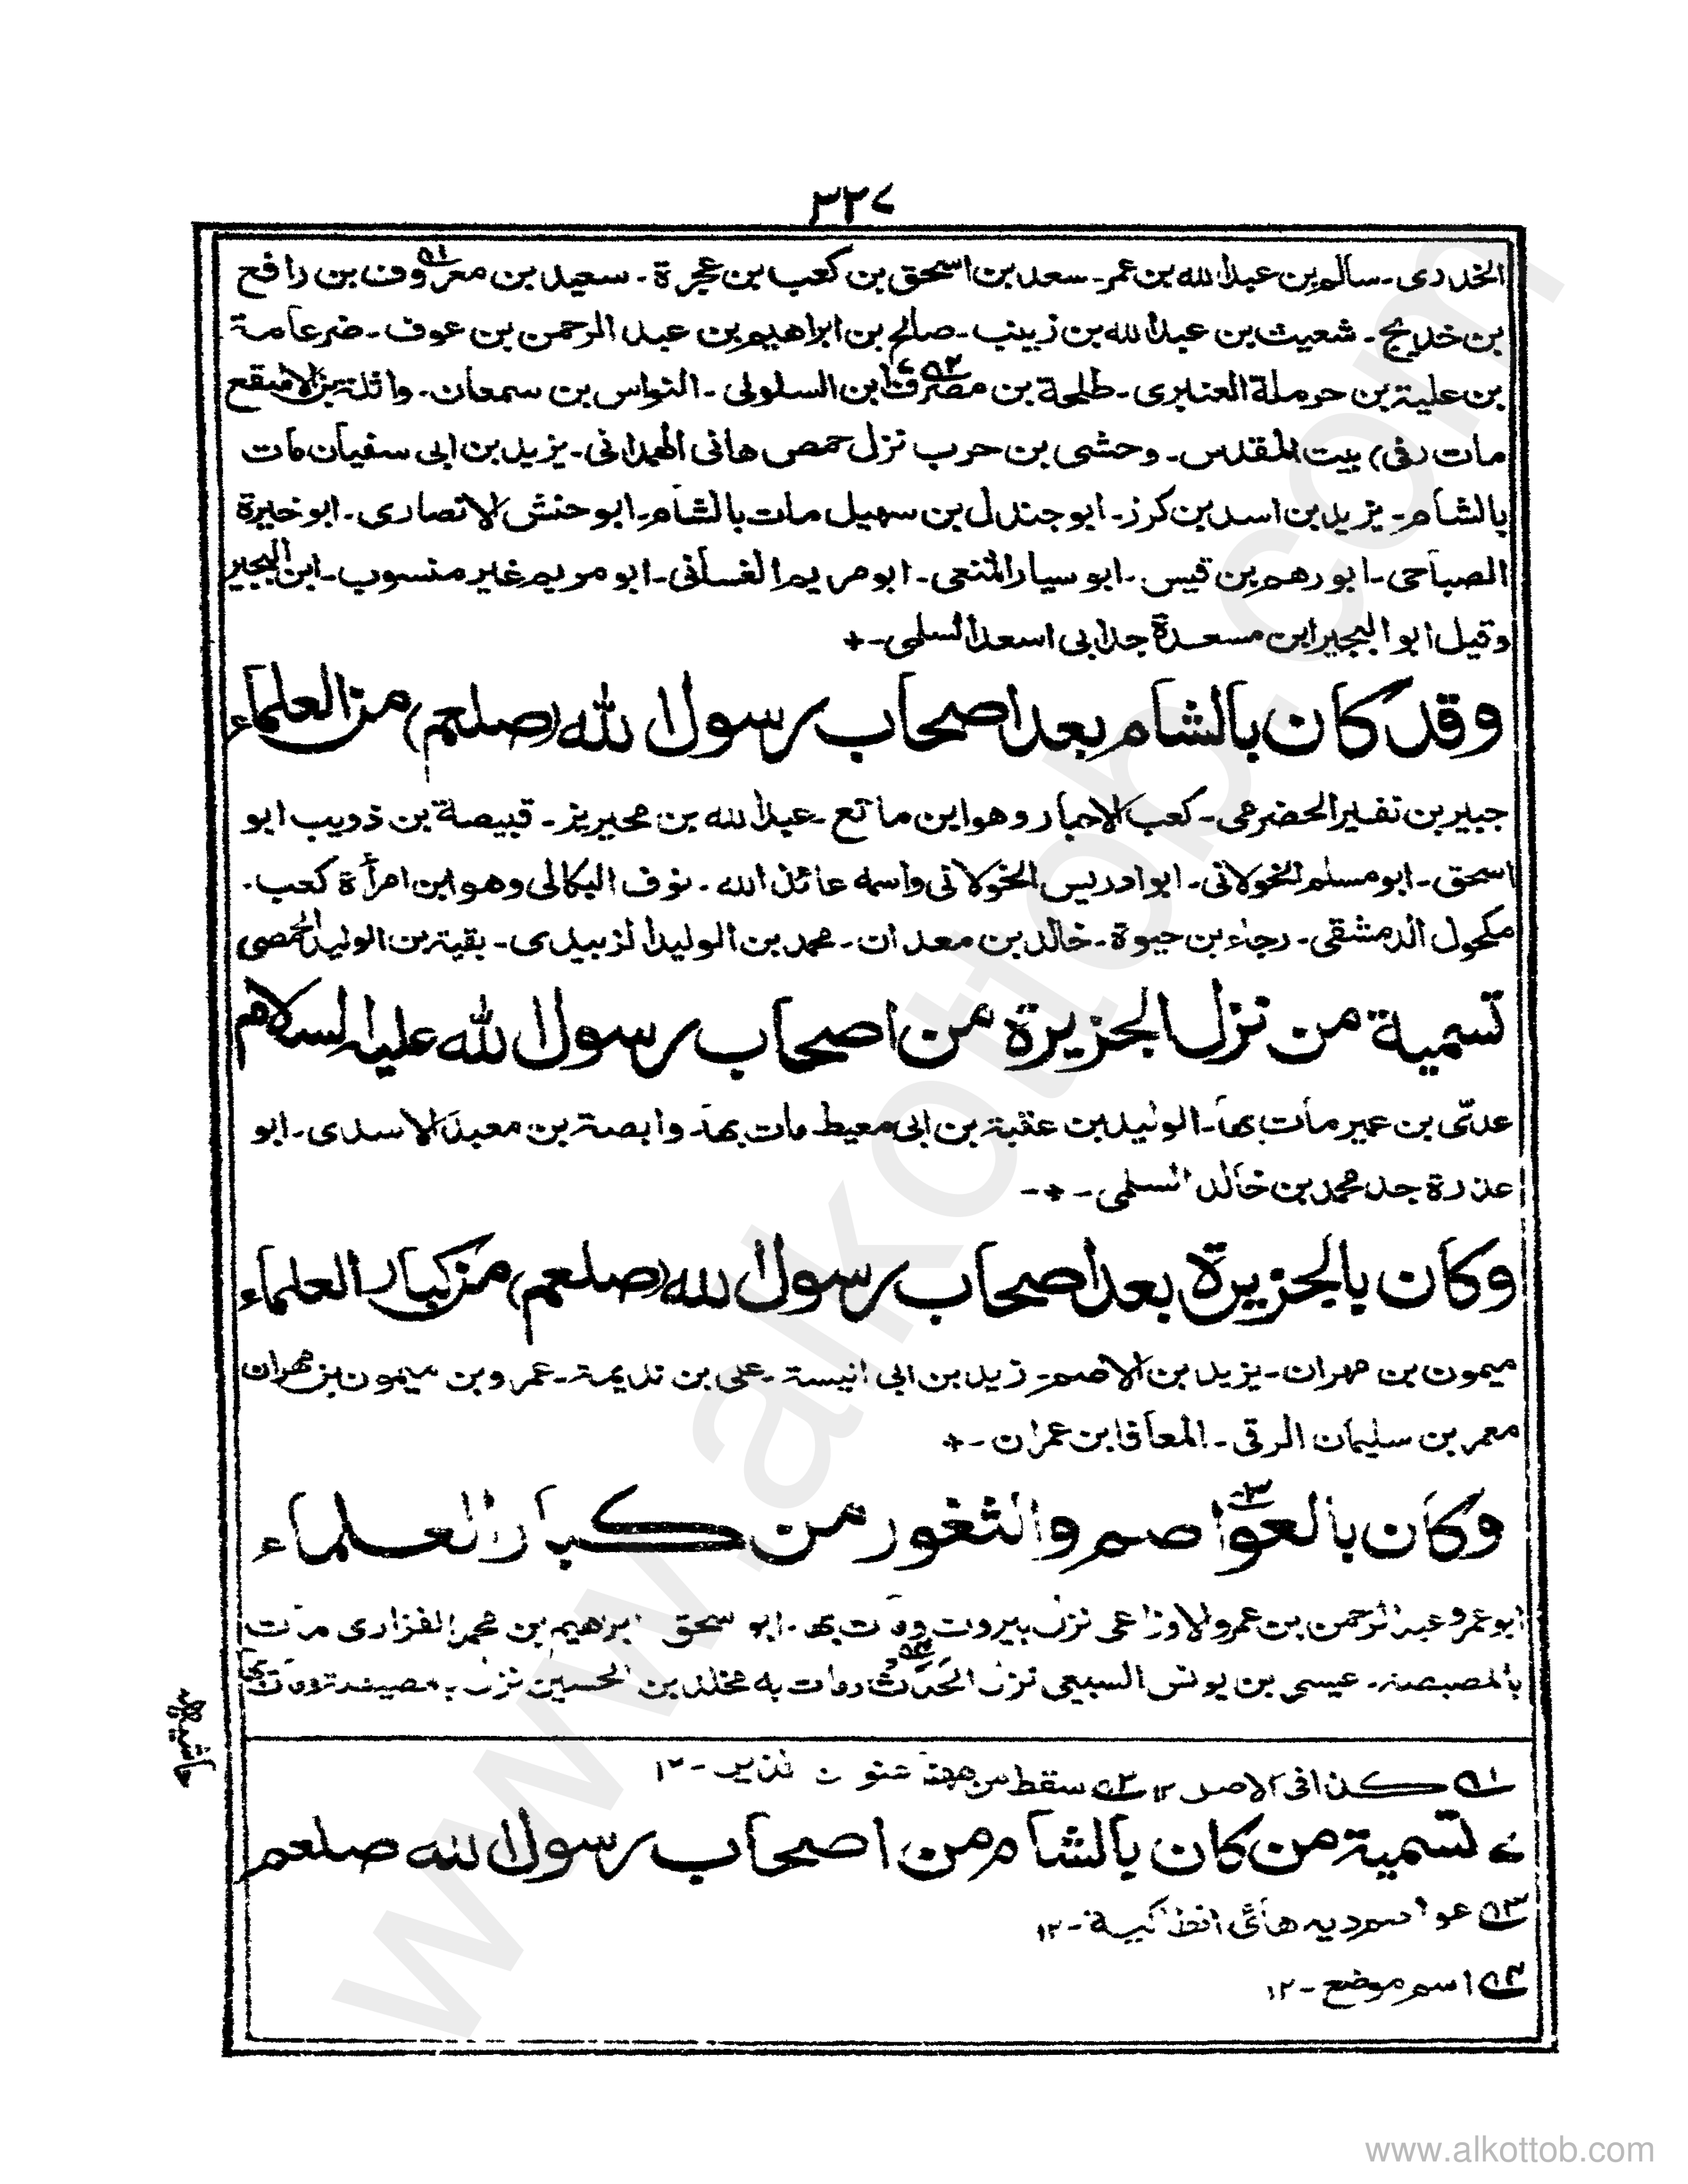 ٣٢٧
الخدری۔ سالم بن عبدالله بن عمر۔ سعد بن اسحق بن كعب بن عجرة۔ سعيد بن معروف بن رافع
بن خديج۔ شعيث بن عبدالله بن زبيب۔ صالح بن ابراهيم بن عبد الرحمن بن عوف۔ ضرعامة
بن علية بن حرملة العنبری۔ طلحة بن مصرف ابن السلولی۔ النواس بن سمعان۔ واثلة بن الاسقع
مات (فی) بيت المقدس۔ وحشی بن حرب نزل حمص هانی الهمدانی۔ يزيد بن ابی سفيان مات
بالشام۔ يزيد بن اسد بن كرز۔ ابو جندل بن سهيل مات بالشام۔ ابو حنش الانصاری۔ ابو خيرة
الصباحی۔ ابو رهم بن قيس۔ ابو سيار المتعی۔ ابو مريم الغسانی۔ ابو مريم غير منسوب۔ ابن البجير
وقيل ابو البجير ابن مسعدة جد ابی اسعد السلمی۔+
وقد كان بالشام بعد اصحاب رسول الله (صلعم) من العلماء
جبير بن نفير الحضرمی۔ كعب الاحبار وهو ابن ماتع۔ عبدالله بن محيريز۔ قبيصة بن ذويب ابو
اسحق۔ ابو مسلم الخولانی۔ ابو ادريس الخولانی واسمه عائذ الله۔ نوف البكالی وهو ابن امرأة كعب۔
مكحول الدمشقی۔ رجاء بن حيوة۔ خالد بن معدان۔ محمد بن الوليد الزبيدی۔ بقية بن الوليد الحمصی
تسمية من نزل الجزيرة من اصحاب رسول الله عليه السلام
عدّی بن عمير مات بها۔ الوليد بن عقبة بن ابی معيط مات بها۔ وابصة بن معبد الاسدی۔ ابو
عذرة جد محمد بن خالد السلمی۔+۔
وكان بالجزيرة بعد اصحاب رسول الله (صلعم) من كبار العلماء
ميمون بن مهران۔ يزيد بن الاصم۔ زيد بن ابی انيسة۔ علی بن نديمة۔ عمرو بن ميمون بن مهران
معمر بن سليمان الرقی۔ المعافا بن عمران۔+
وكان بالعواصم ٣ والثغور من كبار العلماء
ابو عمرو عبد الرحمن بن عمرو الاوزاعی نزل بيروت ومات بها۔ ابو اسحق ابرهيم بن محمد الفزاری مات
بالمصيصة۔ عيسی بن يونس السبيعی نزل الحدث ومات به مخلد بن الحسين نزل بمصيصة ومات
حاشیہ
١ كذا فی الاصل ١٢ ٢ سقط من
تسمية من كان بالشام من اصحاب رسول الله صلعم
٣ عواصم ديه هائی انطاكية۔١٢
٤ اسم موضع۔١٢
www.alkottob.com
www.alkottob.com